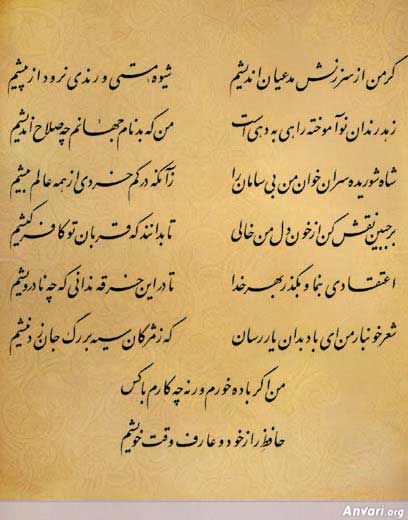 گر من از سرزنش مدعیان اندیشم شیوه مستی و رندی نرود از پیشم
زهد رندان نوآموخته راهی به دهی است من که بدنام جهانم چه صلاح اندیشم
شاه شوریده سران خوان من بی سامان را زآنکه در کم خردی از همه عالم بیشم
بر جبین نقش کن از خون دل من خالی تا بدانند که قربان تو کافر کیشم
اعتقادی بنما و بگذر بهر خدا تا در این خرقه ندانی که چه نادرویشم
شعر خونبار من ای باد بدان یار رسان که ز مژگان سیه بر رگ جان زد نیشم
من اگر باده خورم ورنه چه کارم با کس
حافظ راز خود و عارف وقت خویشم
Anvari.org